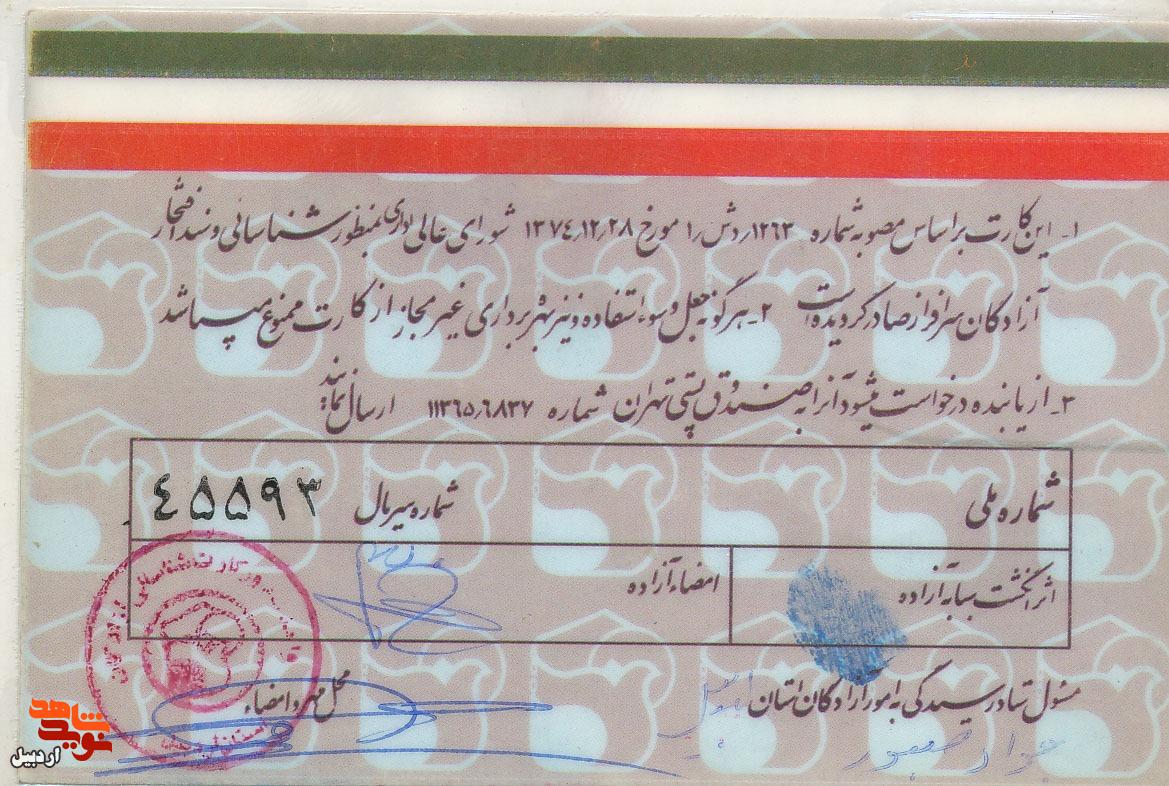 ۱- این کارت بر اساس مصوبه شماره ۱۲۶۳/دش/۱ مورخ ۱۳۷۴/۱۲/۲۸ شورای عالی اداری بمنظور شناسائی و سند افتخار
آزادگان سرافراز صادر گردیده است ۲- هرگونه جعل و سوء استفاده و نیز بهره برداری غیر مجاز از کارت ممنوع میباشد
۳- از یابنده درخواست میشود آنرا به صندوق پستی تهران شماره ۱۱۳۶۵/۶۸۳۷ ارسال نمایند
شماره ملی
شماره سریال ۴۵۵۹۳
اثر انگشت سبابه آزاده
امضاء آزاده
مسئول ستاد رسیدگی به امور آزادگان استان اردبیل
محل مهر و امضاء
جواد صبور
نوید شاهد
اردبیل